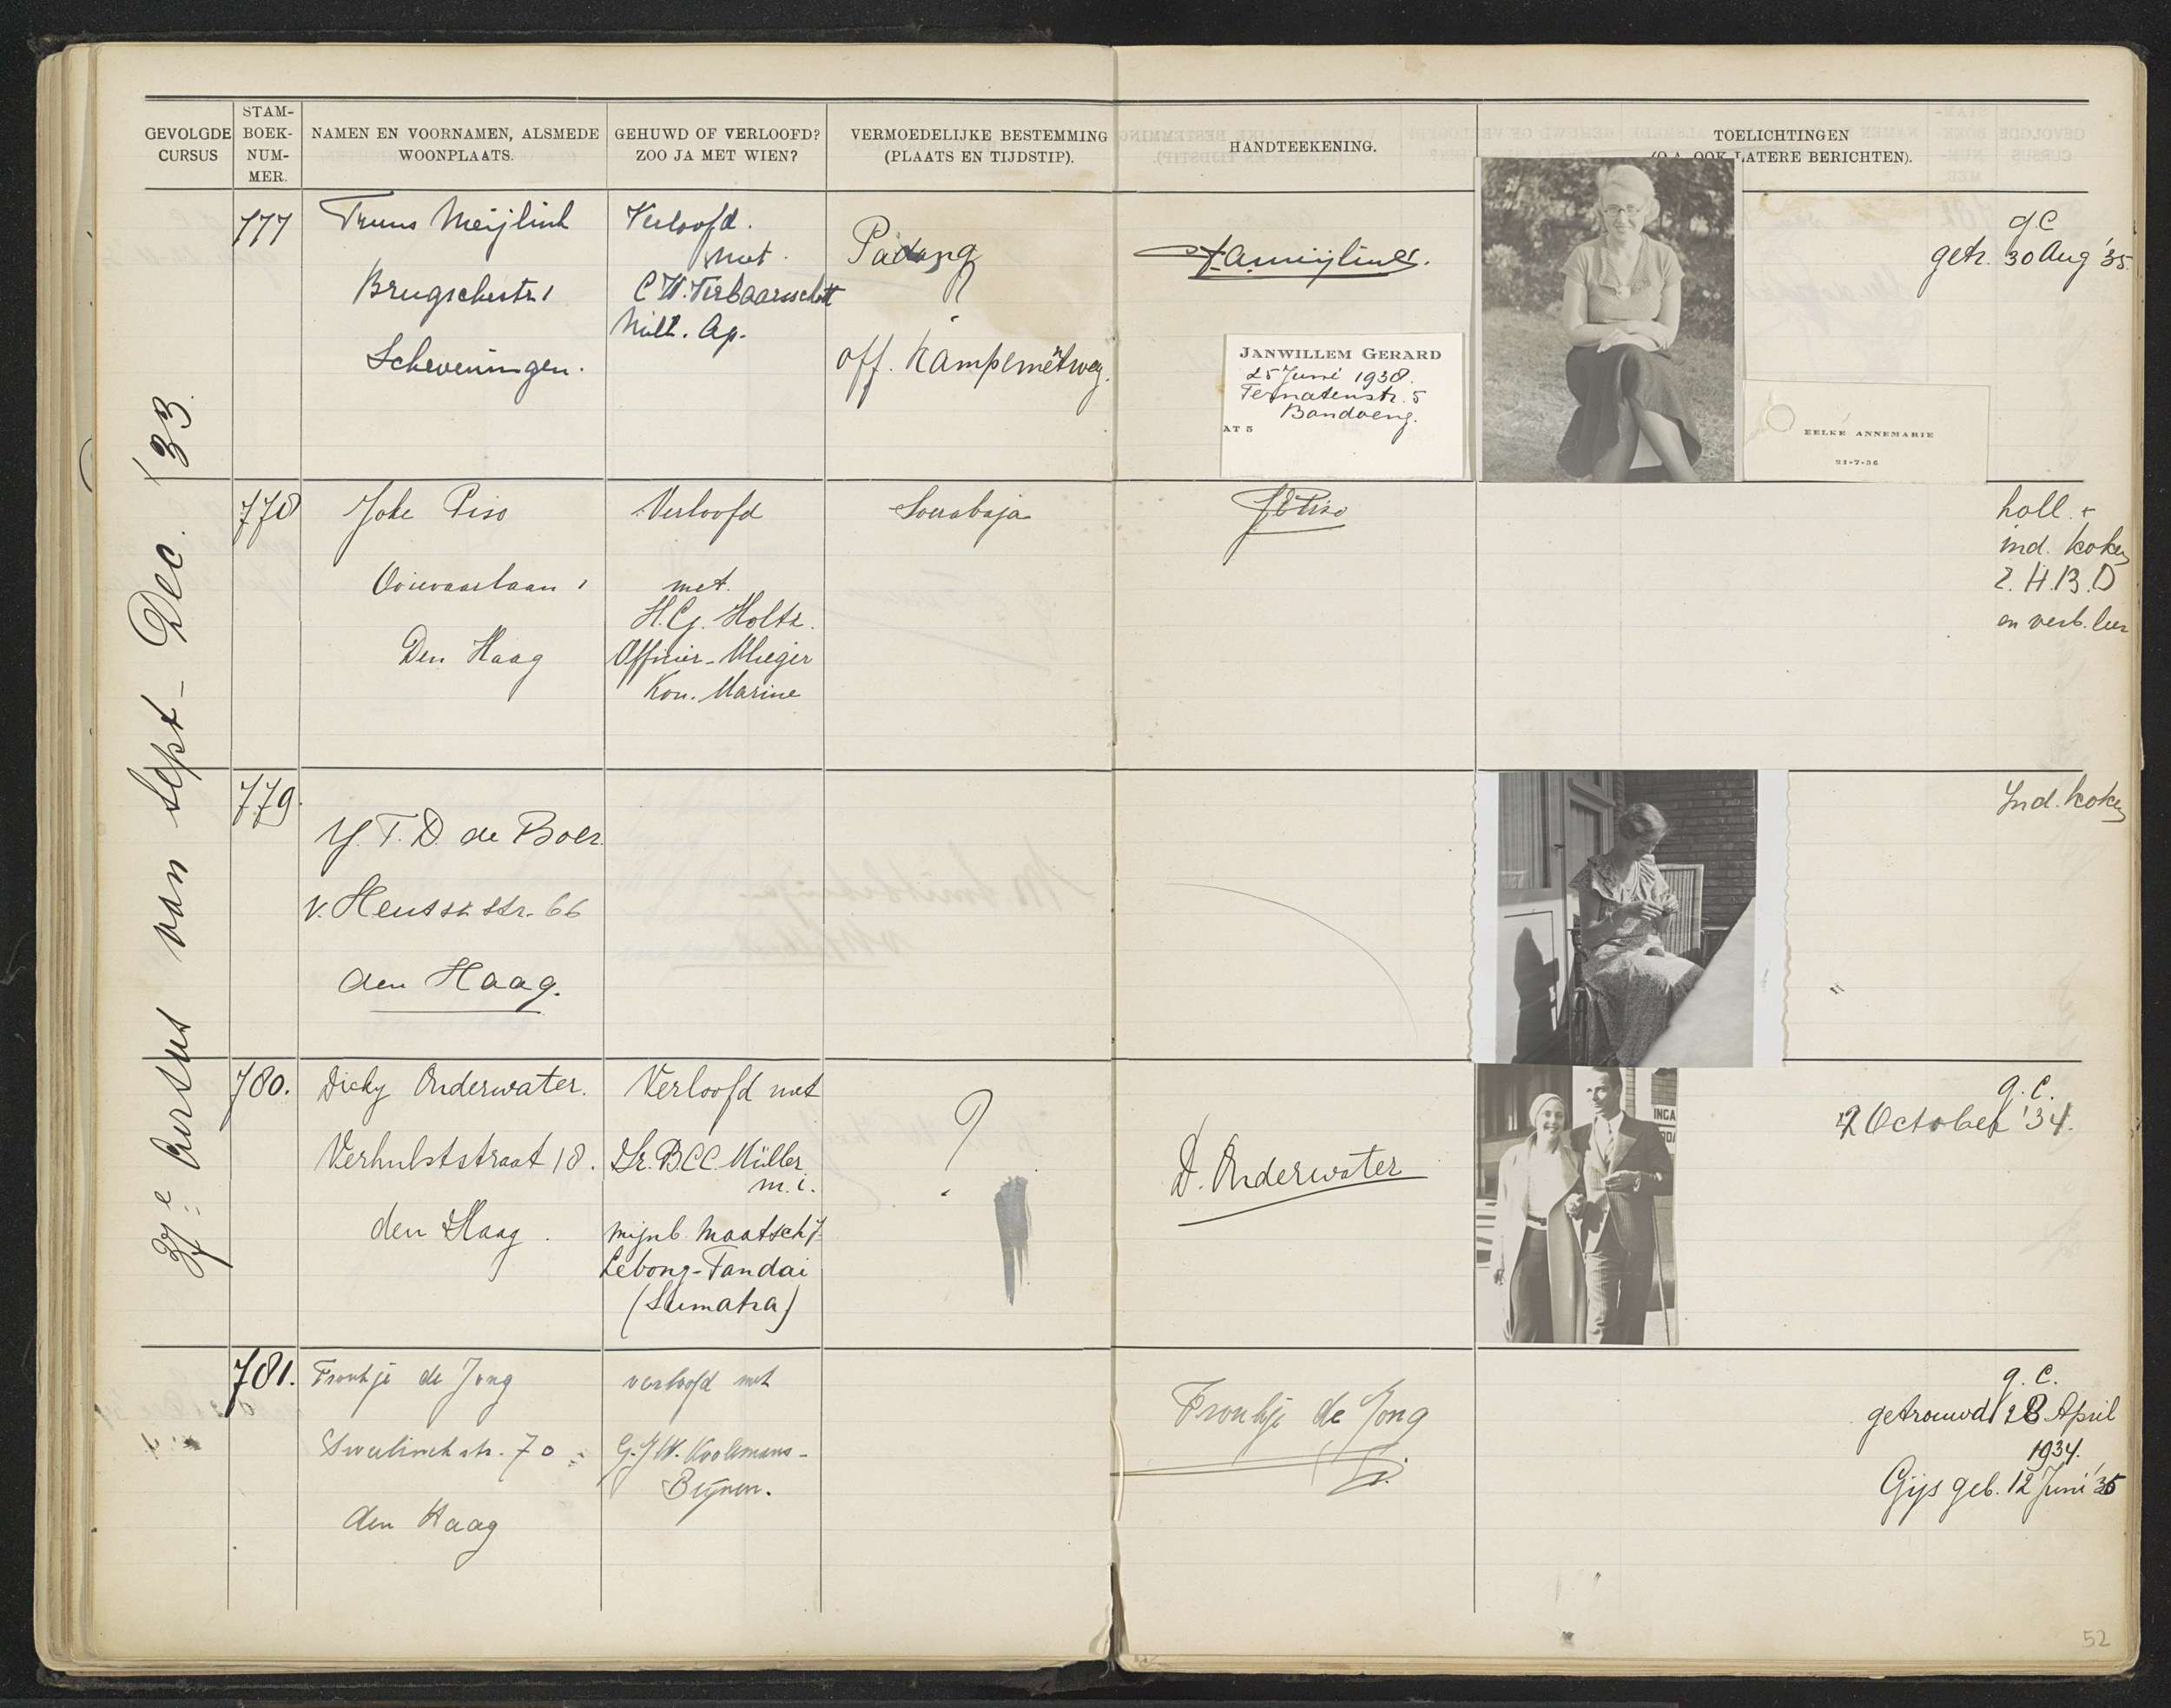 GEVOLGDE
CURSUS
STAM-
BOEK-
NUM-
MER.
NAMEN EN VOORNAMEN, ALSMEDE
WOONPLAATS.
GEHUWD OF VERLOOFD?
ZOO JA MET WIEN?
VERMOEDELIJKE BESTEMMING
(PLAATS EN TIJDSTIP).
HANDTEEKENING.
TOELICHTINGEN
(O.A. OOK LATERE BERICHTEN).
Cursus van Sept - Dec. '33.
777
Truus Meijlink
Brugschestr 1
Scheveningen.
Verloofd.
met.
Milt. Ap.
Padang
?
off.
JANWILLEM GERARD
25 Juni 1938.
Ternatenstr. 5
Bandoeng.
AT 5
EELKE ANNEMARIE
21-7-36
g C
getr. 30 Aug '35.
778
Joke Piso
1
Den Haag
Verloofd
met.
H.G. Holtz.
Officier-Vlieger
Kon. Marine
Soerabaja
JEPiso
holl. +
ind. koken
E.H.B.O
en verb. leer
779.
T. D. de Boer.
v. Heutsz str. 66
den Haag.
Ind. koken
"
780.
Dicky Onderwater.
Verhulststraat 18.
den Haag.
Verloofd met
Dr. B C C Müller
m. i.
mijnb. Maatschij
Lebong-Tandai
(Sumatra)
?
D. Onderwater
INGA
g. C.
October '34.
781.
Froukje de Jong
Sweelinckstr. 70
den Haag
verloofd met
G. J W. Koolemans-
Beijnen.
Froukje de Jong
g. C.
getrouwd 28 April
1934.
Gijs geb. 12 Juni '35
52